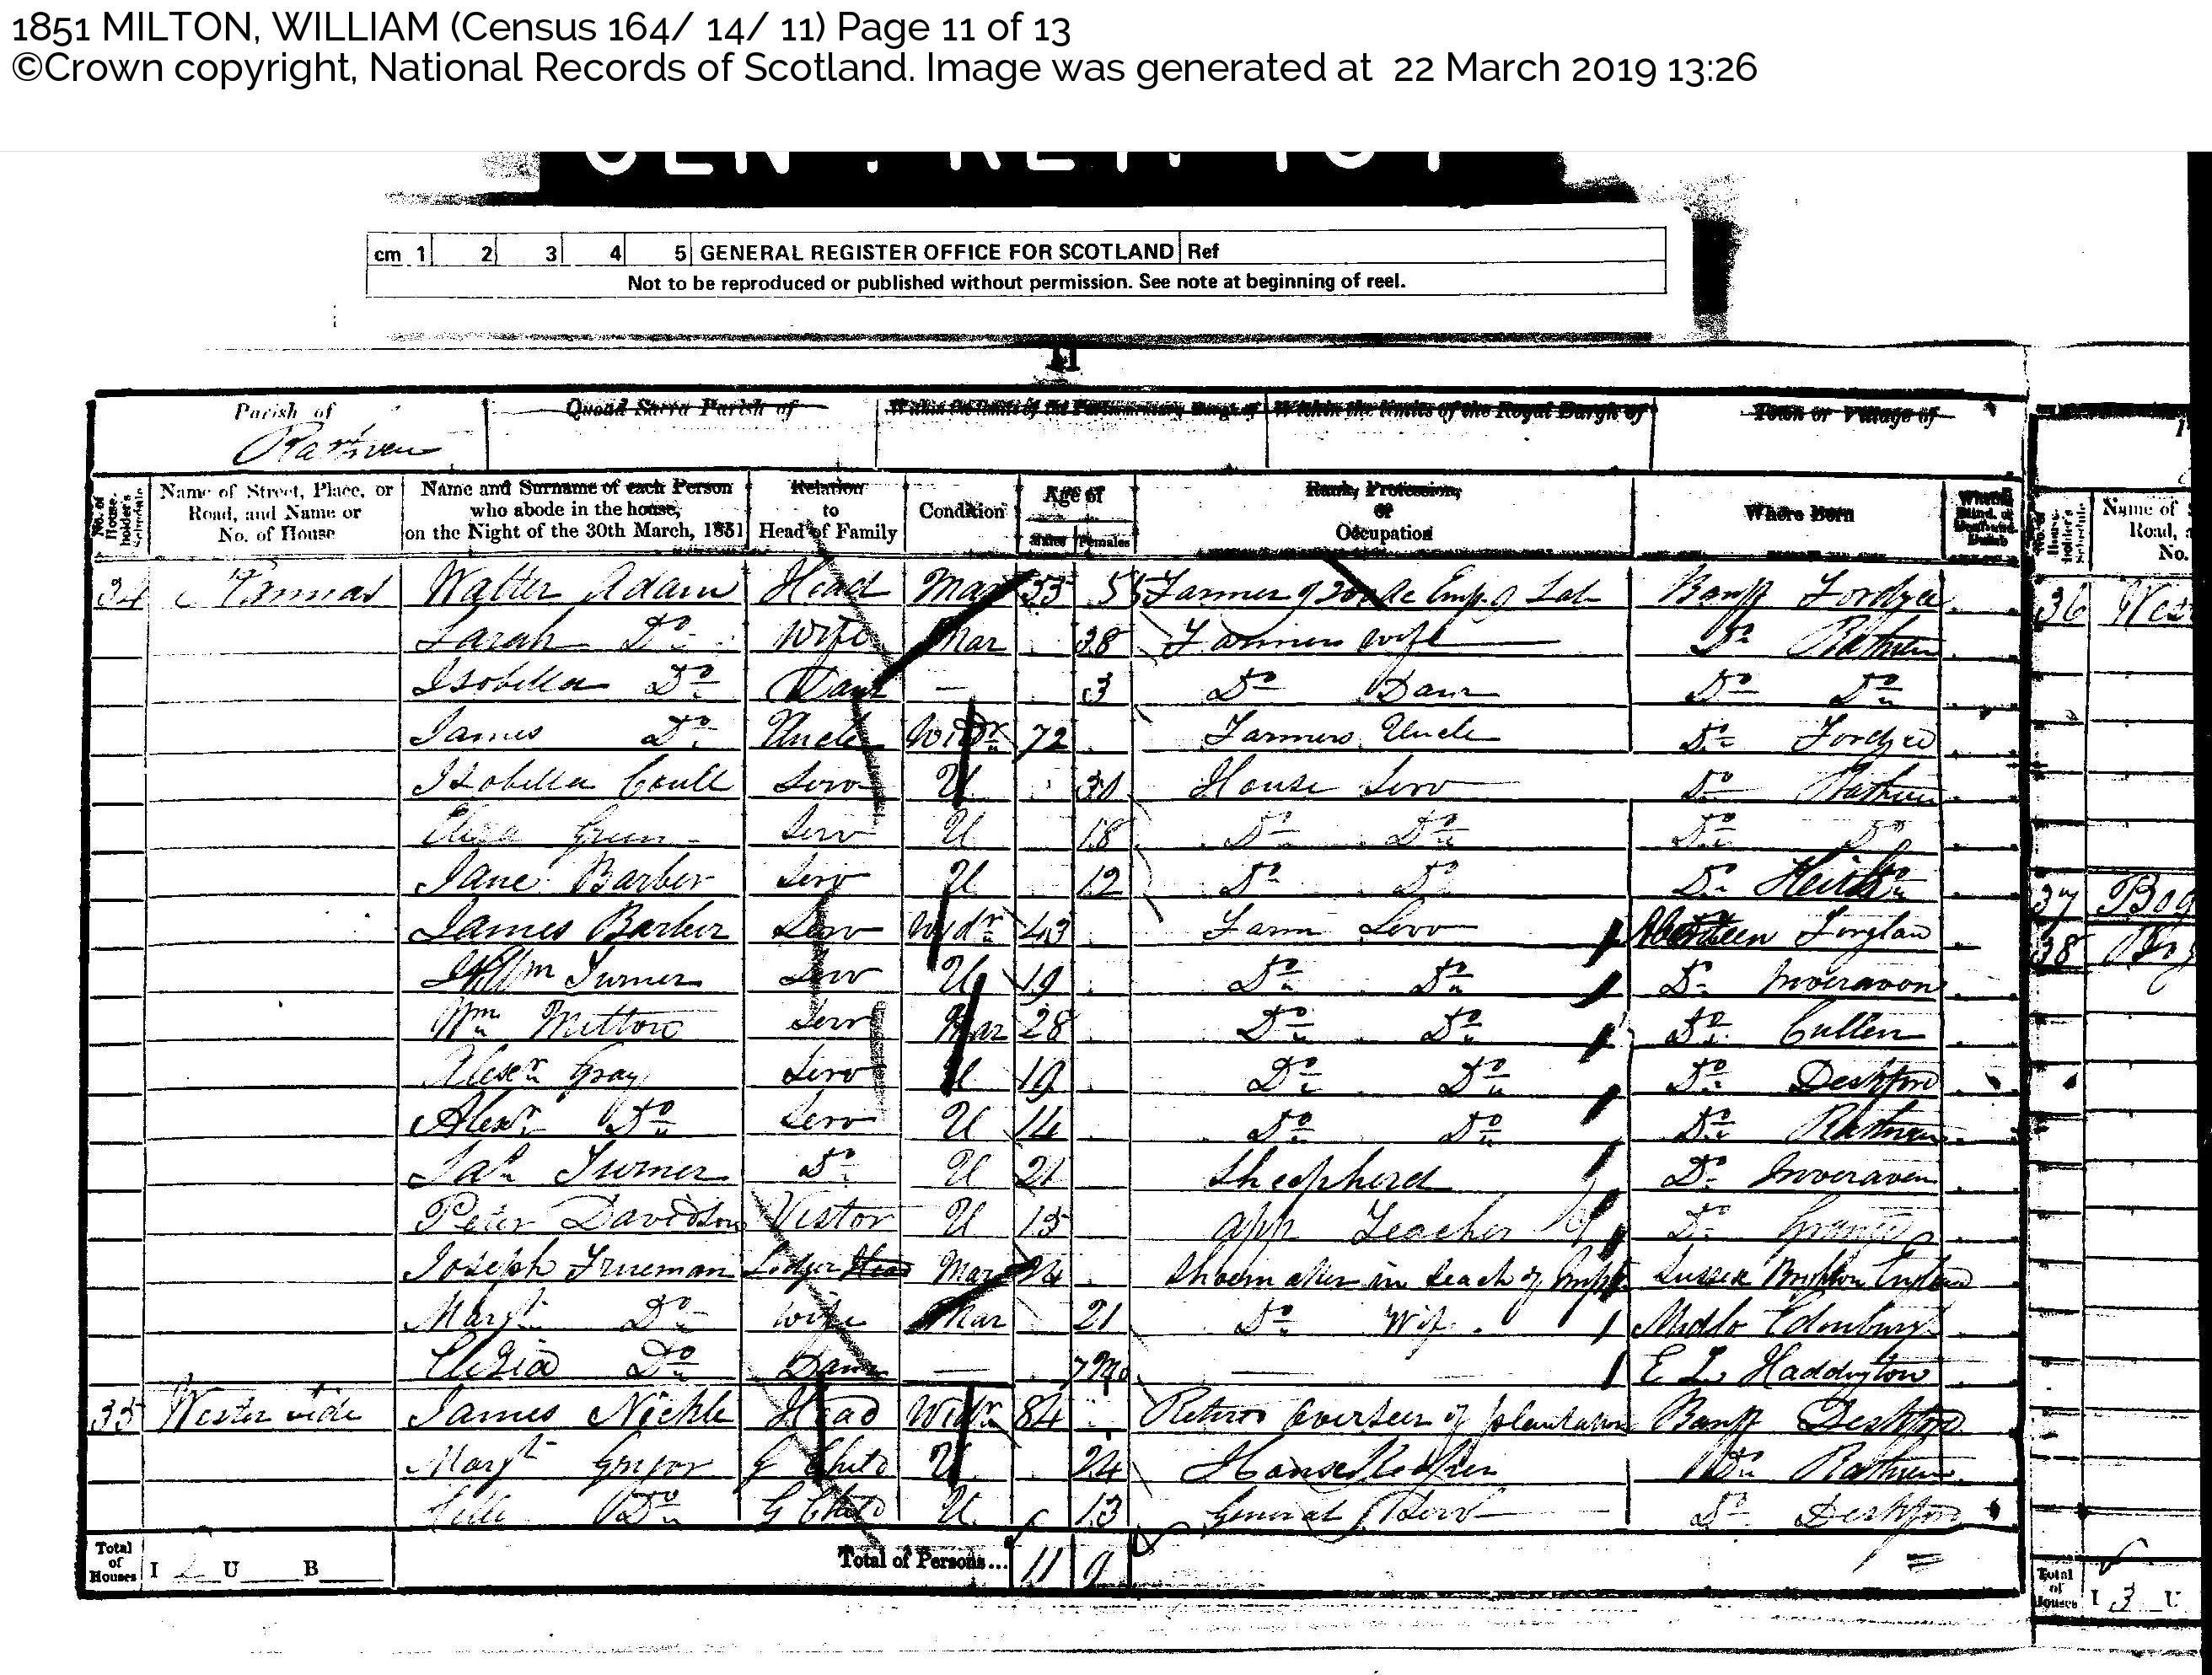 1851 MILTON, WILLIAM (Census 164/ 14/ 11) Page 11 of 13
©Crown copyright, National Records of Scotland. Image was generated at 22 March 2019 13:26
cm 1 2 3 4 5 GENERAL REGISTER OFFICE FOR SCOTLAND Ref
Not to be reproduced or published without permission. See note at beginning of reel.
11
Parish of Quoad Sacra Parish of Within the Limits of the Parliamentary Burgh of Within the Limits of the Royal Burgh of Town or Village of
Rathven
No. of House-holder's Schedule Name of Street, Place, or Road, and Name or No. of House Name and Surname of each Person who abode in the house, on the Night of the 30th March, 1851 Relation to Head of Family Condition Age of Males Females Rank, Profession, or Occupation Where Born Whether Blind, or Deaf and Dumb
34 Walter Adam Head Mar 35 Farmer of Emp. 9 Lab Banff Fordyce
Sarah Do Wife Mar 38 Farmers wife Do Rathven
Isobella Do Daur 3 Do Daur Do Do
James Do Uncle Widr 72 Farmers Uncle Do Fordyce
Isobella Coull Serv U House Serv Do Rathven
Green Serv U 18 Do Do Do Do
Jane Barber Serv U 12 Do Do Do Keith
James Barber Serv Widr 43 Farm Serv Forglan
Willm Turner Serv U 19 Do Do Do Inveravon
Wm Milton Serv Mar 28 Do Do Do Cullen
Alexr Gray Serv U 19 Do Do Do Deskford
Alexr Do Serv U 14 Do Do Do Rathven
Turner Do U 21 Shepherd Do Inveraven
Peter Davidson Vistor U 15 app Teacher Do Grange
Joseph Trueman Lodger Head Mar 24 Shoemaker in seach of Sussex Brighton England
Margt Do Wife Mar 21 Do Wife Midlo Edinburgh
Do Daur 7 Mo E L Haddington
35 Wester side James Nickle Head Widr 84 Retired Overseer of plantations Banff Deskford
Margt Gregor G Child U 24 House Keeper Do Rathven
Do G Child U 13 General Serv Do Deskford
Total of Houses I 2 U B Total of Persons... 11 9
No. of House-holder's Schedule Name of Road, No.
36 Wes
37 Bog
38 Bog
Total of Houses I 3 U